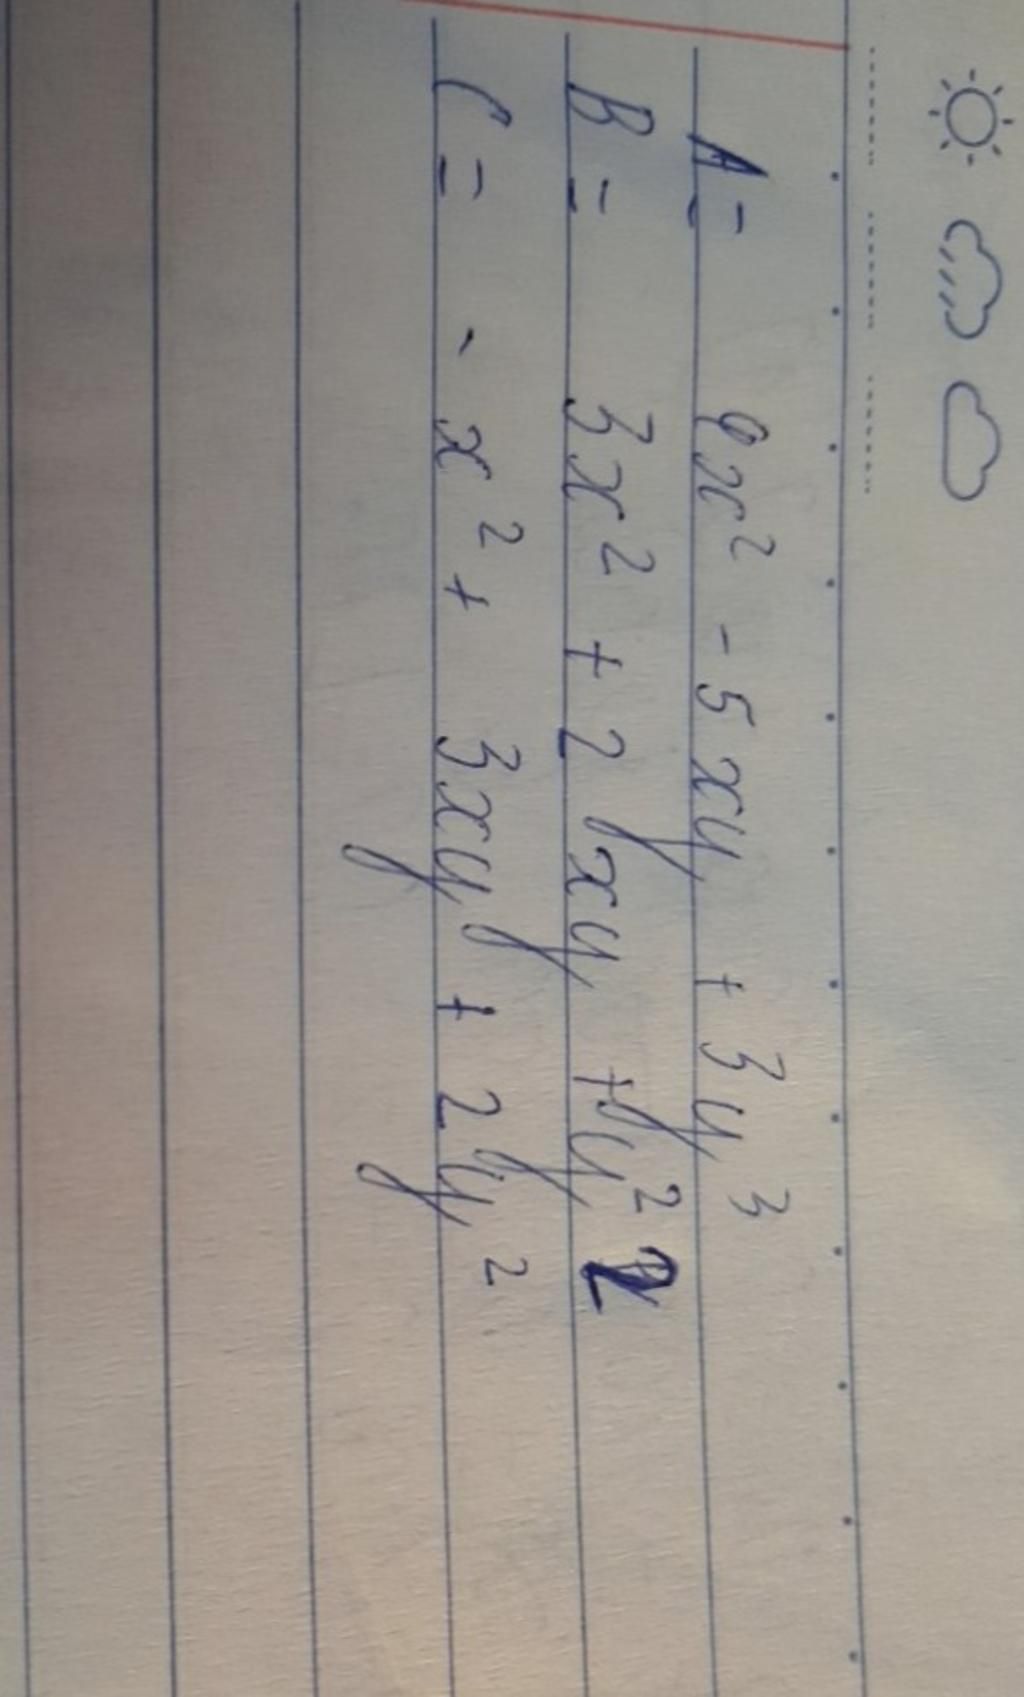 A = 9x² - 5xy + 3y³
B = 3x² + 2xy + y²
C = - x² + 3xy + 2y²